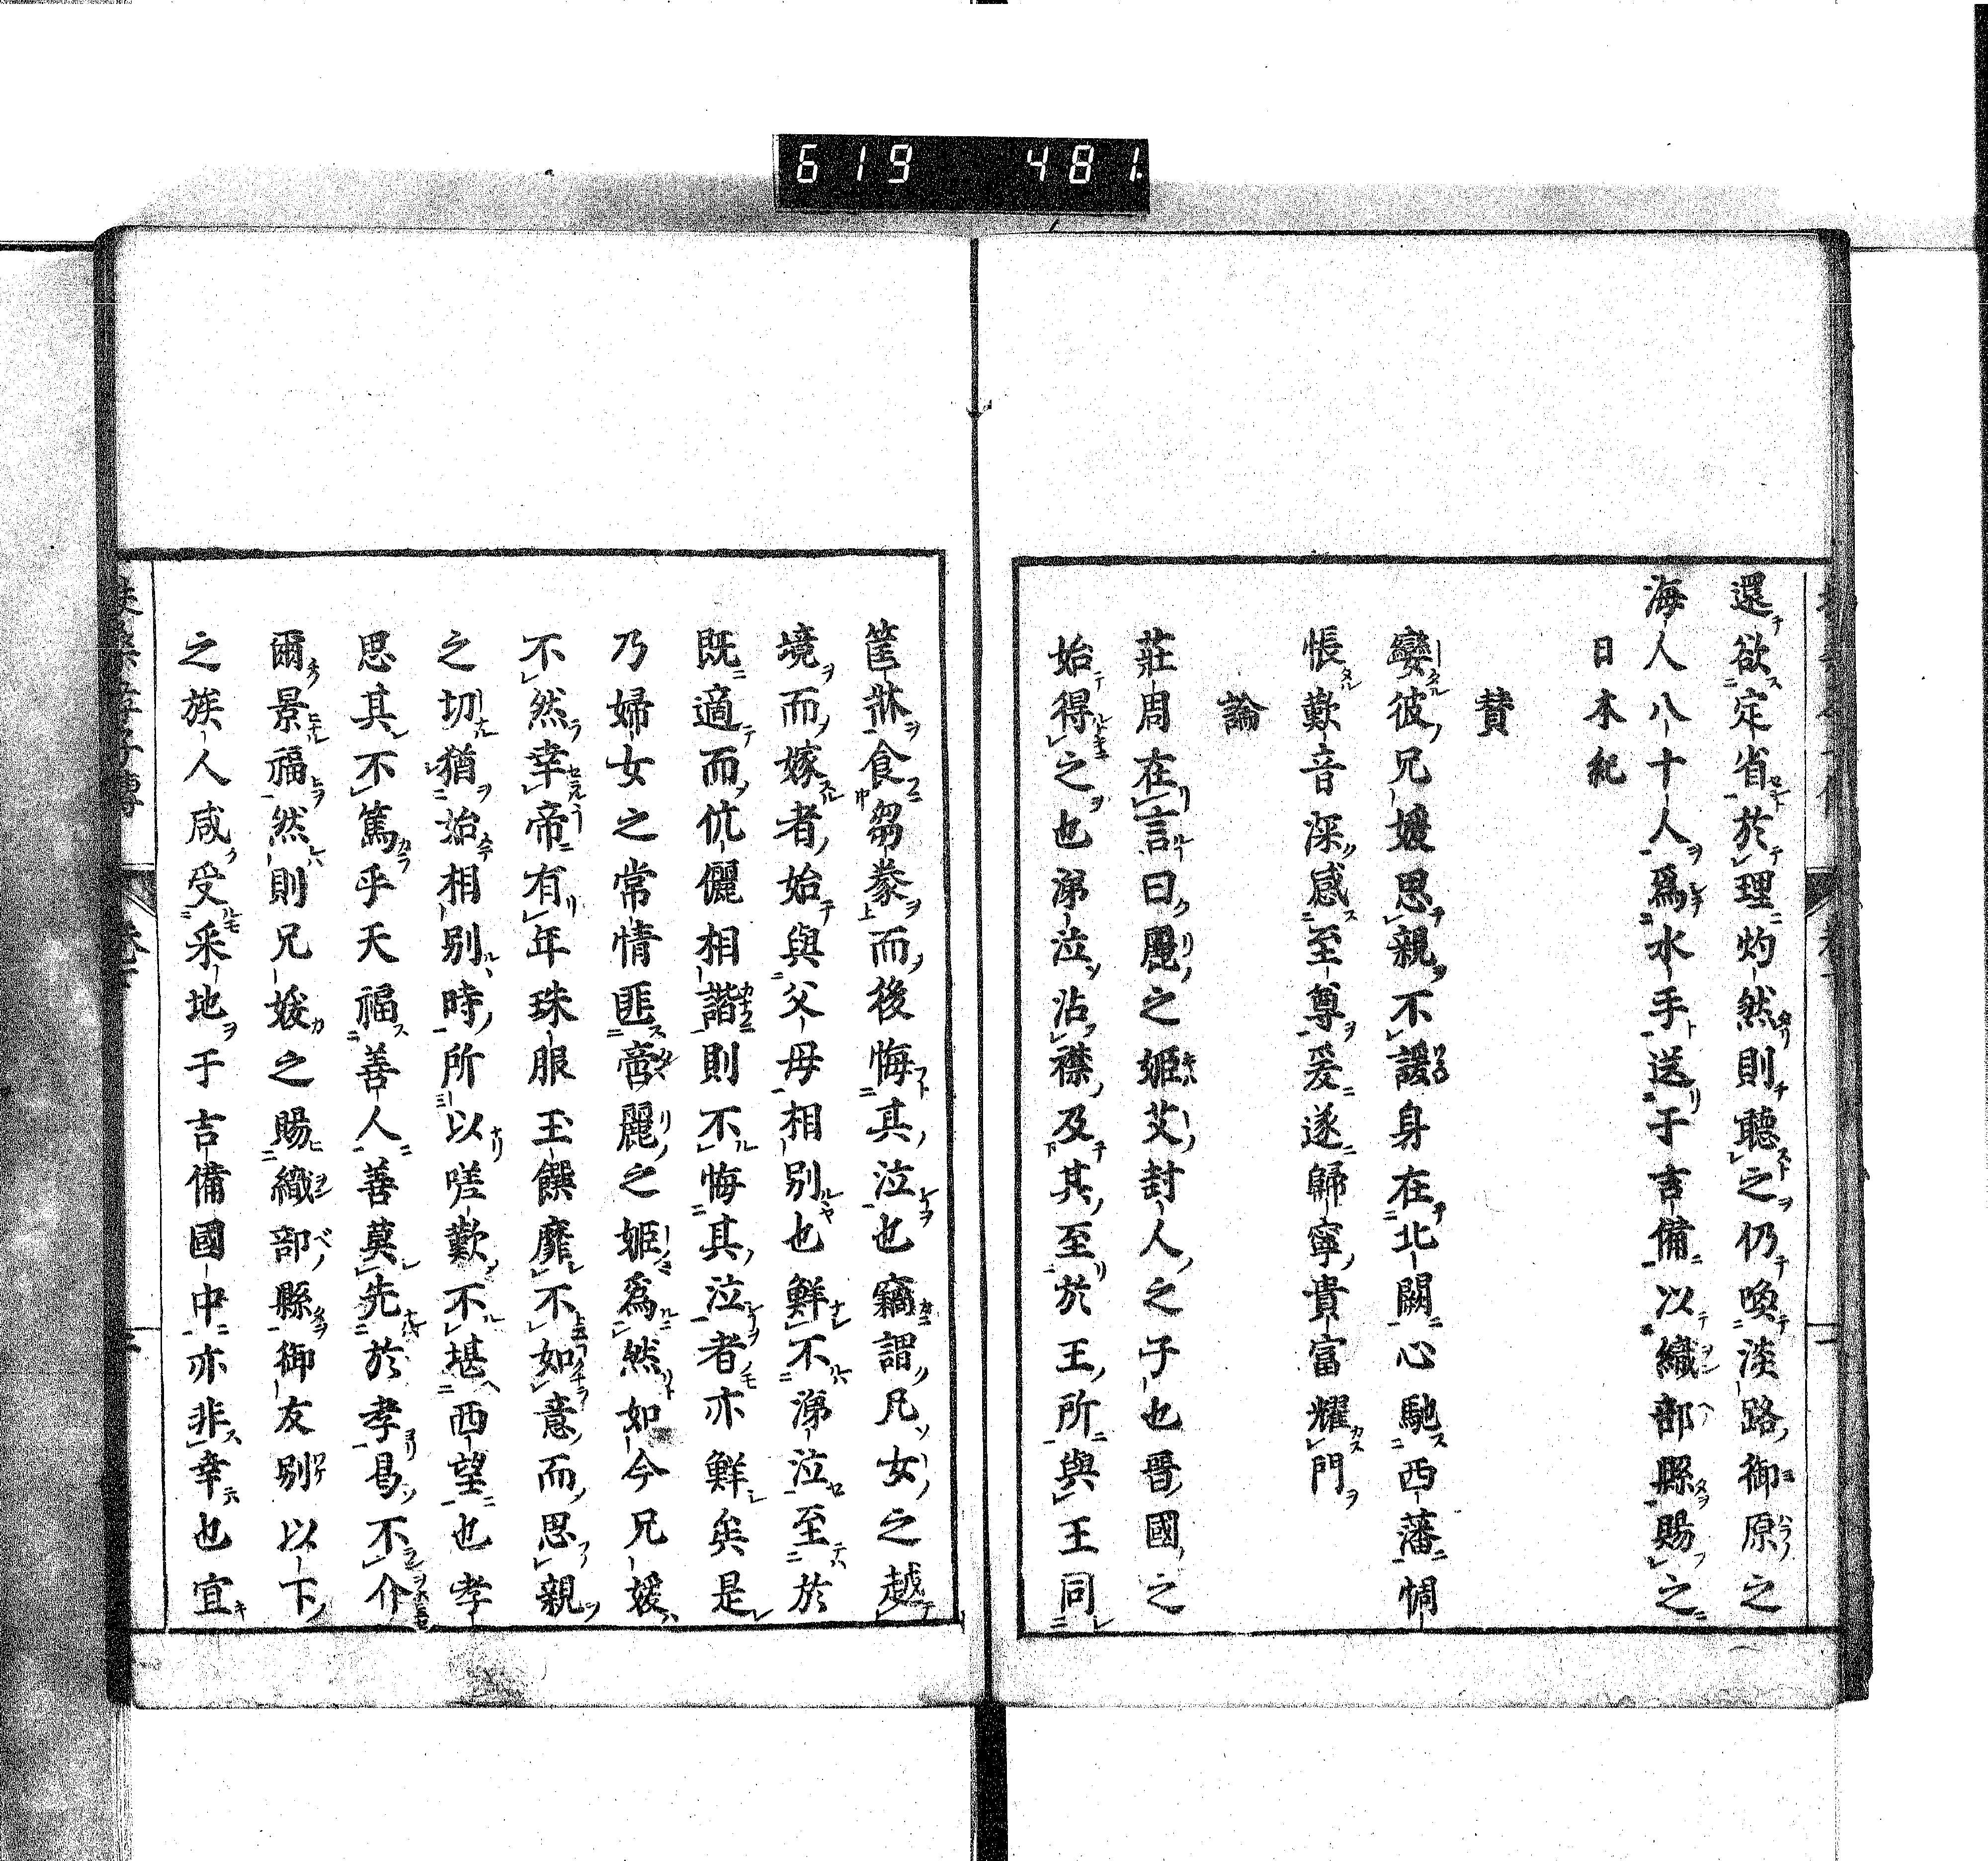 619 481
還欲定省於理灼然則聽之仍喚淡路御原之
海人八十人爲水手送于吉備以織部縣賜之
日本紀
賛
孌彼兄媛思親不諼身在北闕心馳西藩惆
悵歎音深感至尊爰遂歸寧貴富耀門
論
莊周在言曰麗之姬艾封人之子也晋國之
始得之也涕泣沾襟及其至於王所與王同
筐牀食芻豢而後悔其泣也竊謂凡女之越
境而嫁者始與父母相別也鮮不涕泣至於
既適而伉儷相諧則不悔其泣者亦鮮矣是
乃婦女之常情匪啻麗之姬爲然如今兄媛
不然幸帝有年珠服玉饌靡不如意而思親
之切猶治相別時所以嗟歎不堪西望也孝
思其不篤乎天福善人善莫先於孝曷不介
爾景福然則兄媛之賜織部縣御友別以下
之族人咸受采地于吉備國中亦非幸也宜